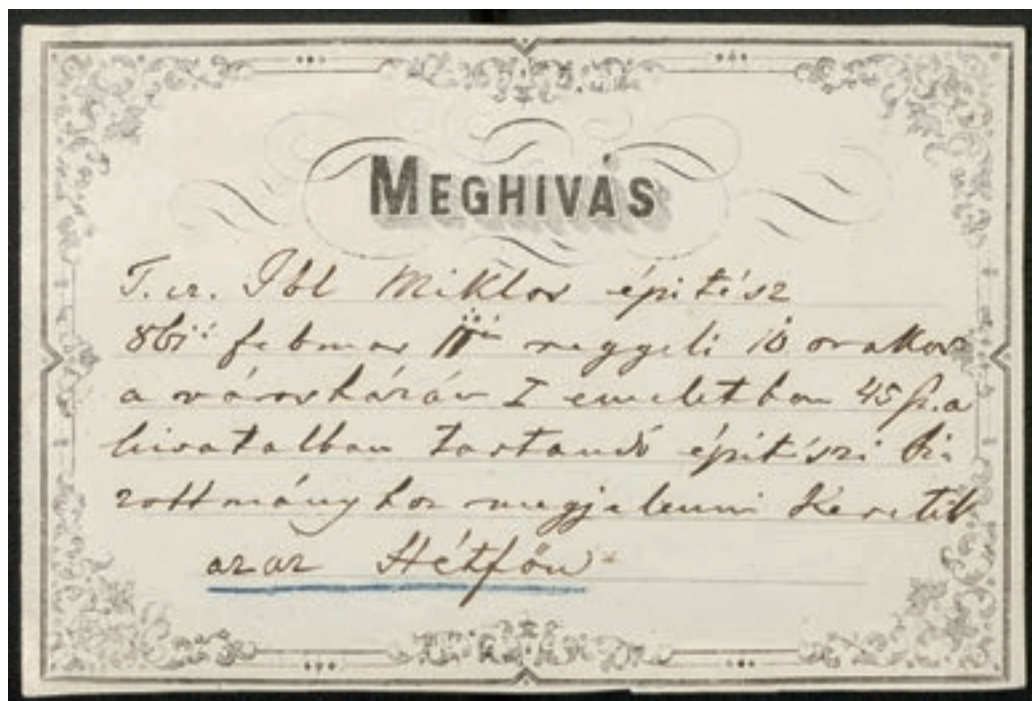 MEGHIVÁS
T. cz. Ibl Miklos épitész
861 februar 11 reggeli 10 orakor
a városházán I emeletben 45 sz. a
hivatalban tartandó épitészi bi
zottmányhoz megjelenni Keretik
azaz Hétfőn